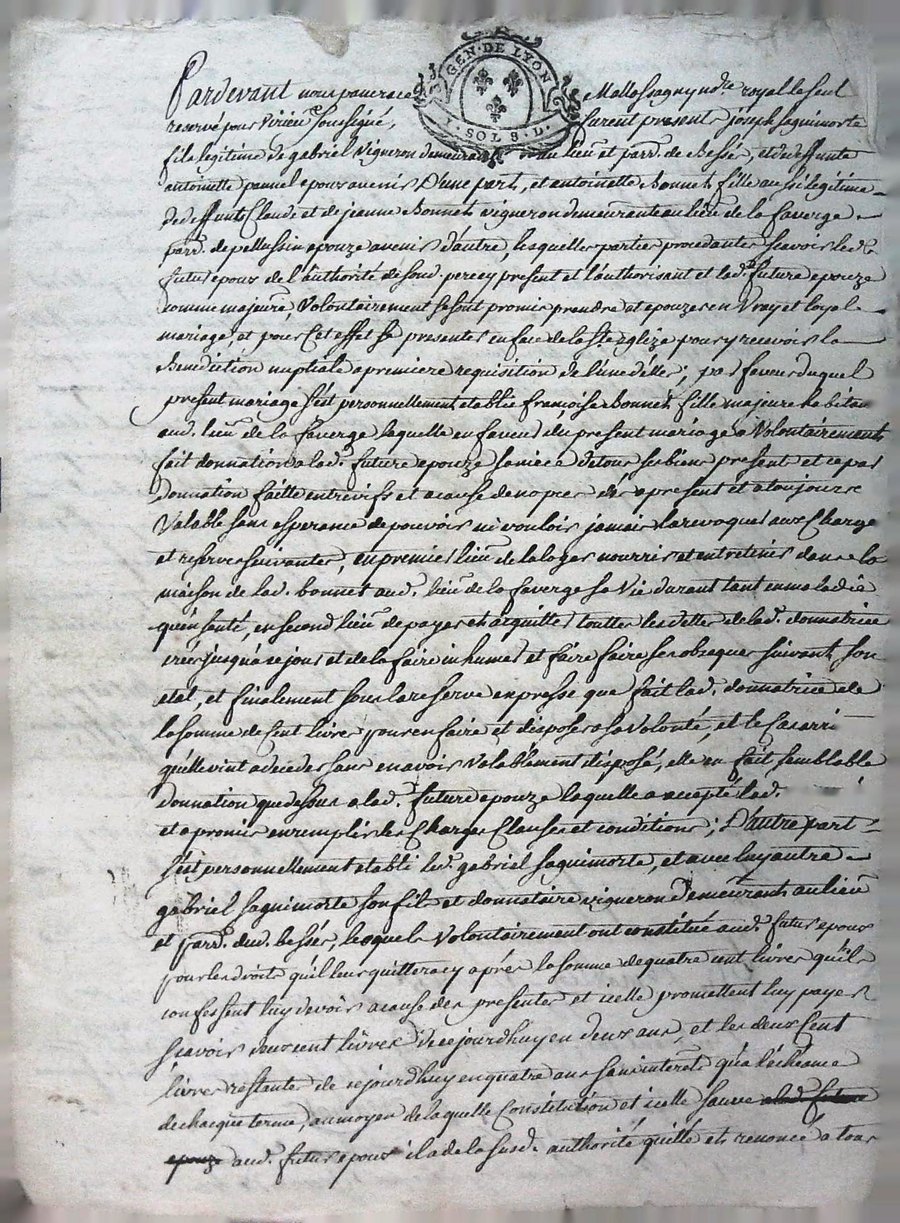 GEN. DE LYON
SOLS. D.
Pardevant nous Mallossagny no.re royal le seul
reservé pour Virieu soussigné, furent presents joseph saquimorte
fils legitime de gabriel vigneron demeurant au lieu et parr. de Bessés, et de deffunte
antoinette pannel epoux avenir D'une part, et antoinette Bonnet fille aussi légitime
de deffunt Claude et de jeanne Bonnet vigneron demeurante au lieu de la faverge
parr. de pellussin epouze avenir d'autre, lesquelles parties procedantes scavoir led.t
futur epoux de l'authorité de sond. perecy present et l'authorisant et lad. future epouze
comme majeure, Volontairement se sont promis prendre et epouzer en Vray et loyal
mariage, et pour Cet effet se presenter en face de la S.te eglize pour y recevoir la
Benediction nuptiale a premiere requisition de l'une d'elles; par faveur duquel
present mariage s'est personnellement etablie françoise Bonnet fille majeure habitan
aud. lieu de la faverge laquelle en faveur du present mariage a Volontairement
fait donnation a lad. future epouze sa niece de tous ses biens present et ce par
donnation faitte entrevifs et a cause de nopces dès apresent et a toujours
Valable sans esperance de pouvoir ni vouloir jamais la revoquer aux Charge
et reserves suivantes, en premier lieu de la loger nourrir et entretenir dans la
maison de lad. bonnet aud. lieu de la faverge sa Vie durant tant en maladie
qu'en santé, en second lieu de payer et acquitter touttes les dettes de lad. donnatrice
creés jusqu'a ce jour et de la faire inhumer et faire faire ses obseques suivant son
etat, et finalement sous la reserve expresse que fait lad. donnatrice de
la somme de Cent livres pour en faire et disposer a sa Volonté, et le cas arri
qu'elle vint a deceder sans en avoir valablement disposé, elle en fait semblable
donnation que dessus a lad. future epouze laquelle a accepté lad.
et a promis en remplir les Charges Clauses et conditions; D'autre part
s'est personnellement etabli led. gabriel saquimorte, et avec luy autre
gabriel saquimorte son fils et donnataire vigneron Demeurants au lieu
et parr. dud. bessés, lesquels Volontairement ont constitué aud. futur epoux
pour les droits qu'il leur quittera cy aprés la somme de quatre cent livres qu'ils
confessent luy devoir a cause des presentes et icelle promettent luy payer
scavoir deux cent livres de ce jourdhuy en deux ans, et les deux Cent
livres restantes de ce jourdhuy en quatre ans sans interets qu'a l'echeance
de chaque terme, au moyen de laquelle Constitution et icelle sauve a lad. future
epouze aud. futur epoux il a de la susd. authorité quitté et renoncé a tous